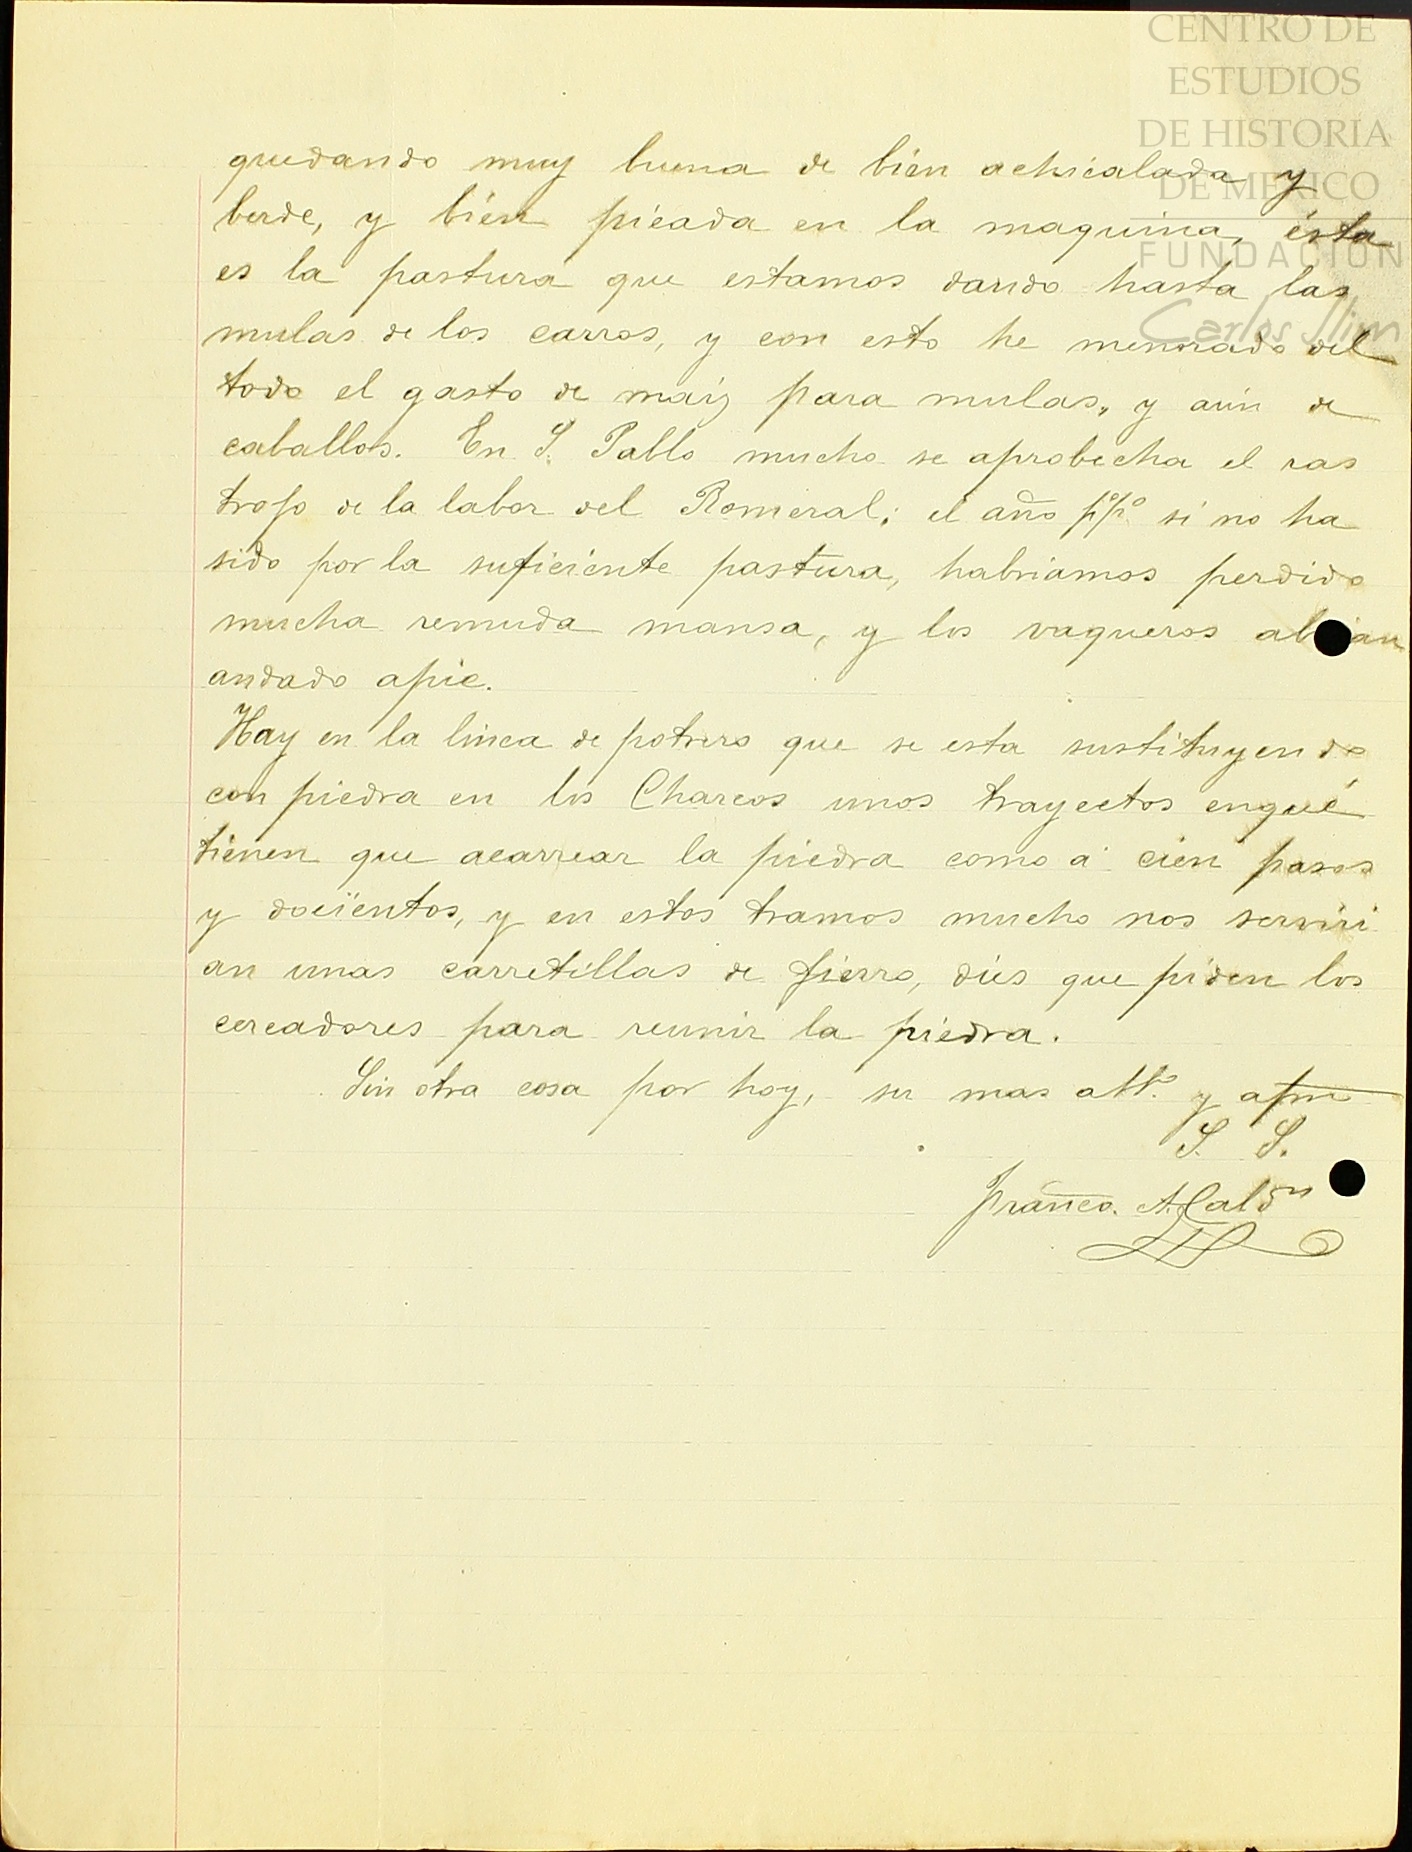 CENTRO DE
ESTUDIOS
DE HISTORIA
DE MÉXICO
FUNDACIÓN
Carlos Slim
quedando muy buena de bien achicalada y
berde, y bién picada en la maquina, ésta
es la pastura que estamos dando hasta las
mulas de los carros, y con esto he menorado del
todo el gasto de maiz para mulas, y aún de
caballos. En S. Pablo mucho se aprobecha el ras
trojo de la labor del Romeral; el año p⁰p⁰ si no ha
sido por la suficiente pastura, habriamos perdido
mucha remuda mansa, y los vaqueros ab ian
andado apie.
Hay en la linea de potrero que se esta sustituyendo
con piedra en los Charcos unos trayectos enqué
tienen que acarrear la piedra como á cien pasos
y dociéntos, y en estos tramos mucho nos serviri
an unas carretillas de fierro, diés que piden los
cercadores para reunir la piedra.
Sin otra cosa por hoy, su mas att.º y afmo
S. S.
Franco. A. Caldn